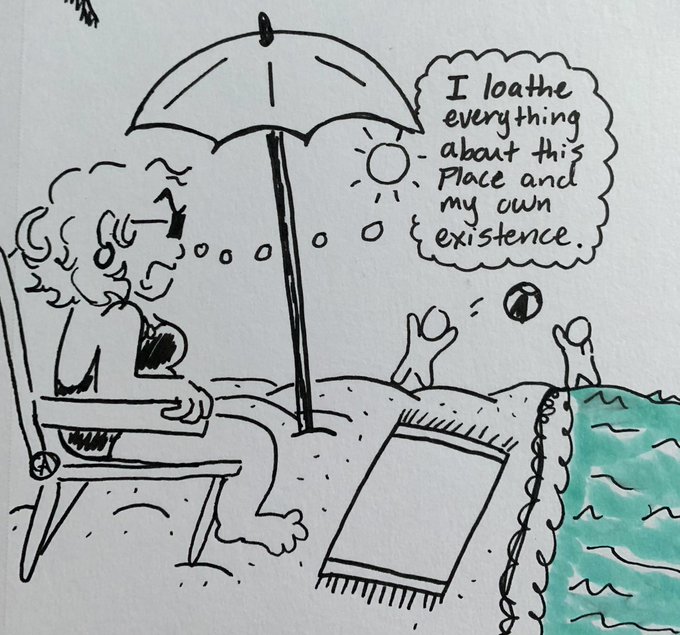 I loathe
everything
about this
Place and
my own
existence.
A